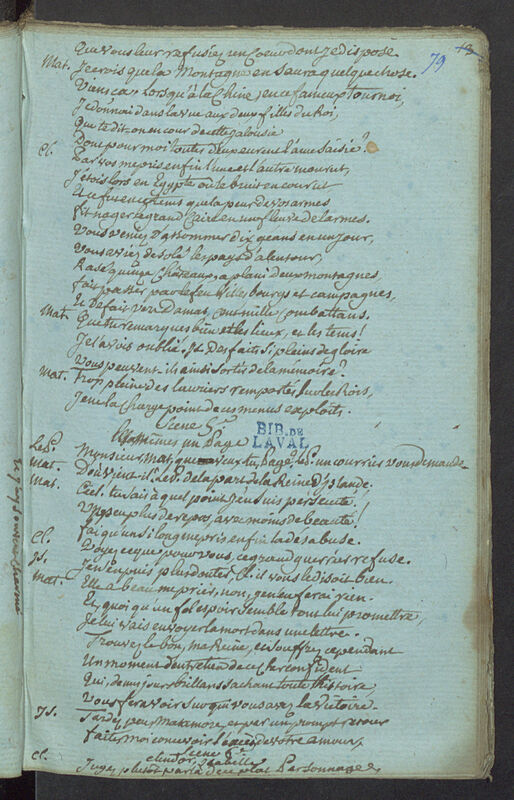 79
Qui vous leur refusiez un Coeur dont je dispose
Mat. Je crois que la Montagne en saura quelque chose.
Viens ca, Lorsqu'à la Chine, en ce fameux tournoi,
Je donnai dans la vue aux deux filles du Roi,
Que te dit on en cour de cette jalousie
Dont pour moi toutes deux eurent l'ame saisie?
Cl. Par vos mepris enfin l'une et l'autre mourut,
J'etois lors en Egypte où le bruit en courut
Et ce fut en ce tems que la peur de vos armes
Fit nager le grand Caire en un fleuve de larmes.
Vous veniez d'assommer dix geans en un jour,
Vous aviez desolé les pays d'alentour,
Rasé quinze Châteaux, aplani deux montagnes,
fait passer par le feu Villes, bourgs et campagnes,
Et Defait vers Damas, cent mille combattans.
Mat. Que tu remarques bien et les lieux, et les tems!
Je l'avois oublié. Is. Des faits si pleins de gloire
Vous peuvent-ils ainsi sortir de la memoire?
Mat. Trop pleine des lauriers remportés sur les Rois,
Je ne la charge point de ces menus exploits.
Scene 5e
Les mêmes un Page
BIB. DE
LAVAL
Le P. Monsieur, Mat. que veux tu, Page? Le P. un courrier vous demande.
Mat. D'où vient-il? Le P. de la part de la Reine d'Islande.
Mat. Ciel! tu sais à quel point j'en suis persecuté!
Un peu plus de repos, avec moins de beauté!
fai qu'un si long mepris enfin la desabuse.
Cl. Voyez ce que pour vous, ce grand guerrier refuse.
Is. Je n'en puis plus douter, Cl. il vous le disoit bien.
Mat. Elle a beau me prier, non, je n'en ferai rien.
Et, quoi qu'un fol espoir semble vous lui promettre,
Je lui vais envoyer la mort dans une lettre.
Trouvez le bon, ma Reine, et souffrez cependant
Un moment d'entretien de ce cher confident
Qui, de mes jours brillans sachant toute l'histoire,
Vous fera voir sur qui vous avez la victoire.
Is. Tardez peu, Matamore, et par un prompt retour
faites moi concevoir l'excès de votre amour,
Scene 6e
Clindor, Isabelle
Cl. Jugez plutôt par là de ce plat Personnage;